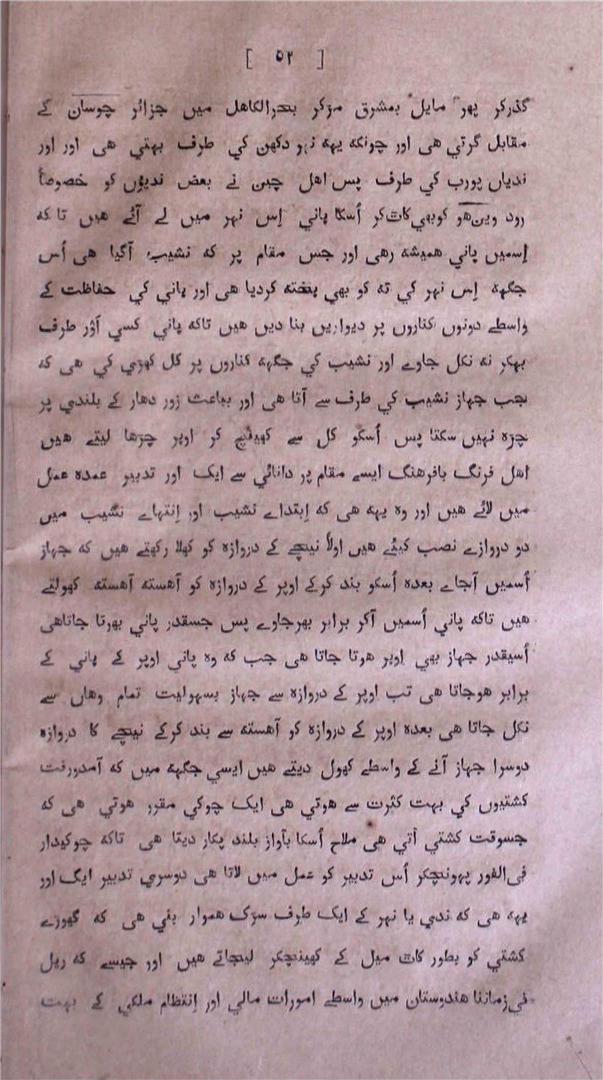 [ ٥٢ ]
گذرکر پھر مایل بمشرق مڑکر بندرالکاهل میں جزائر چوسان کے
مقابل گرتي هی اور چونکه یهه نهر دکھن کي طرف بهتي هی اور اور
ندیاں پورب کي طرف پس اهل چین نے بعض ندیوں کو خصوصاً
رود وین‌هو کوبھي کات‌کر اُسکا پاني اِس نهر میں لے آئے هیں تا که
اِسمیں پاني همیشه رهی اور جس مقام پر که نشیب آگیا هی اُس
جگهه اِس نهر کي ته کو بھي پخته کردیا هی اور پاني کي حفاظت کے
واسطے دونوں کناروں پر دیواریں بنا دیں هیں تاکه پاني کسي اَوْر طرف
بهکر نه نکل جاوے اور نشیب کي جگهه کناروں پر کل کھڑي کي هی که
جب جهاز نشیب کي طرف سے آتا هی اور بباعث زور دھار کے بلندي پر
چڑہ نهیں سکتا پس اُسکو کل سے کھینچ کر اوپر چڑھا لیتے هیں
اهل فرنگ بافرهنگ ایسے مقام پر دانائي سے ایک اور تدبیر عمدہ عمل
میں لائے هیں اور وہ یهه هی که اِبتداے نشیب اور اِنتهاے نشیب میں
دو دروازے نصب کیئے هیں اولاً نیچے کے دروازہ کو کھلا رکھتے هیں که جهاز
اُسمیں آجاے بعدہ اُسکو بند کرکے اوپر کے دروازہ کو آهسته آهسته کھولتے
هیں تاکه پاني اُسمیں آکر برابر بھرجاوے پس جسقدر پاني بھرتا جاتاهی
اُسیقدر جهاز بھي اوپر هوتا جاتا هی جب که وہ پاني اوپر کے پاني کے
برابر هوجاتا هی تب اوپر کے دروازہ سے جهاز بسهولیت تمام وهاں سے
نکل جاتا هی بعدہ اوپر کے دروازہ کو آهسته سے بند کرکے نیچے کا دروازہ
دوسرا جهاز آنے کے واسطے کھول دیتے هیں ایسي جگهه میں که آمدورفت
کشتیوں کي بهت کثرت سے هوتي هی ایک چوکي مقرر هوتي هی که
جسوقت کشتي آتي هی ملاح اُسکا بآواز بلند پکار دیتا هی تاکه چوکیدار
في‌الفور پهونچکر اُس تدبیر کو عمل میں لاتا هی دوسري تدبیر ایک اور
یهه هی که ندي یا نهر کے ایک طرف سڑک هموار بني هی که گھوڑے
کشتي کو بطور کات میل کے کھینچکر لیجاتے هیں اور جیسے که ریل
في‌زماننا هندوستان میں واسطے امورات مالي اور اِنتظام ملکي کے بهت